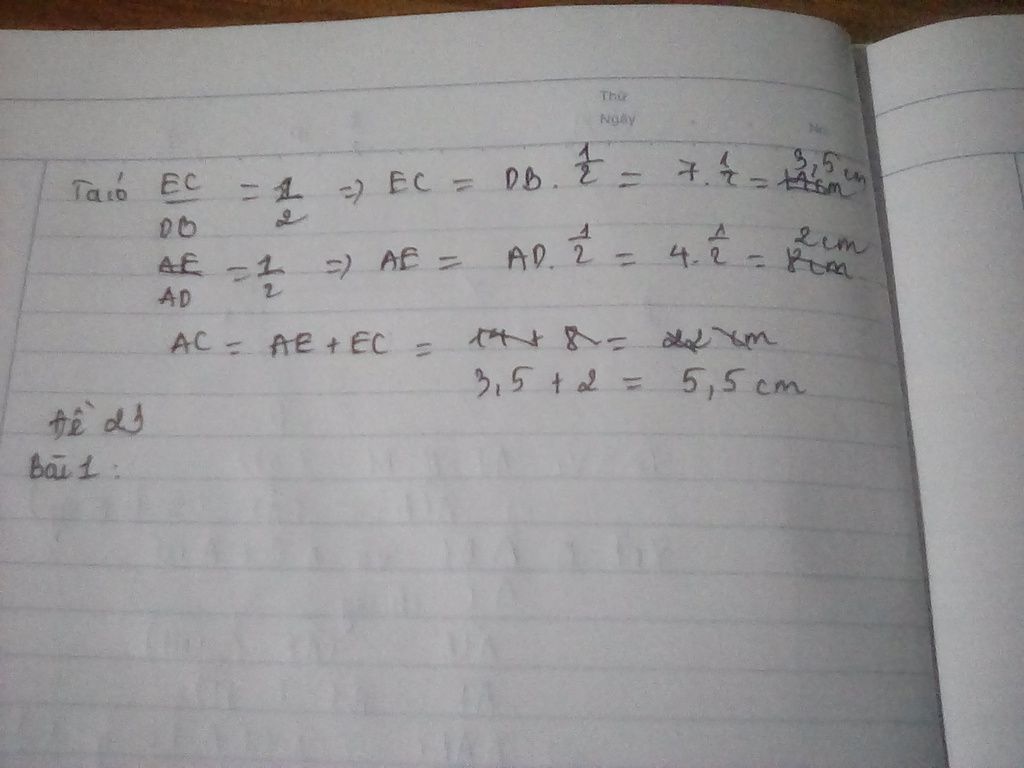 Thứ
Ngày
No.
Ta có EC/DB = 1/2 => EC = DB . 1/2 = 7 . 1/2 = 3,5 cm
AE/AD = 1/2 => AE = AD . 1/2 = 4 . 1/2 = 2 cm
AC = AE + EC = 14 + 8 = 22 cm
3,5 + 2 = 5,5 cm
Đề 23
Bài 1 :